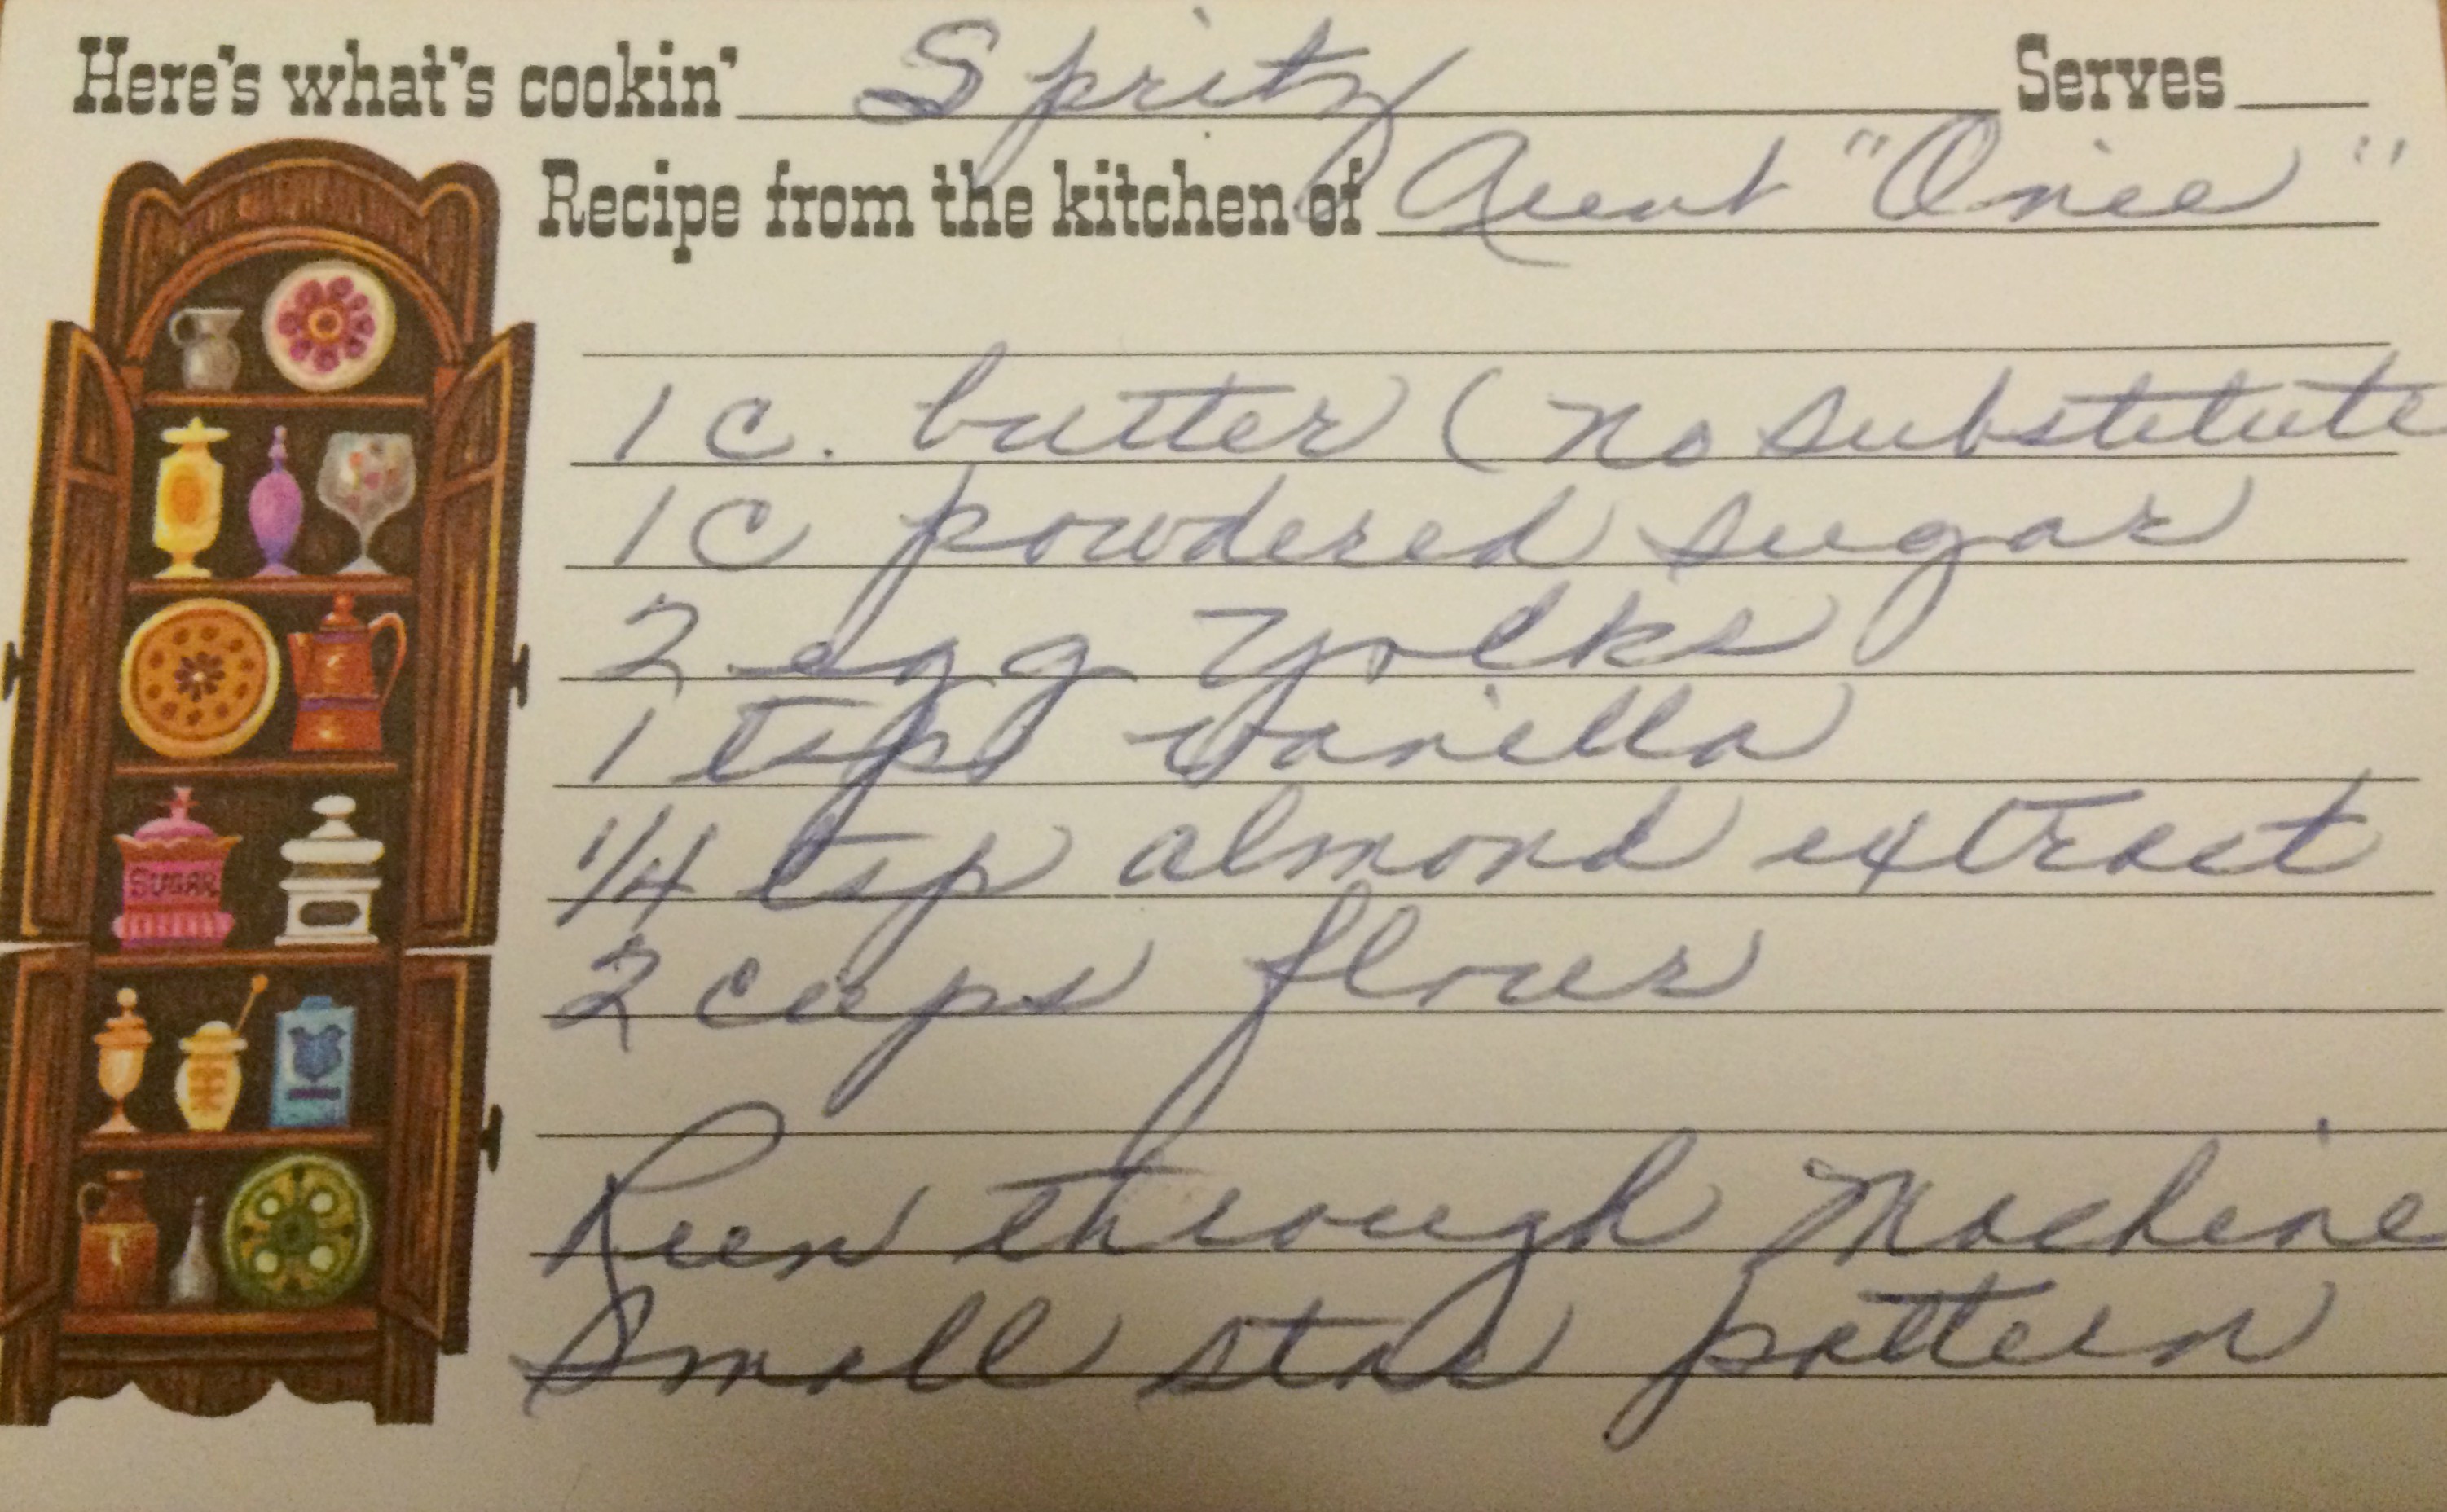 Here's what's cookin' Spritz Serves
Recipe from the kitchen of Aunt "Onie"
1 c. butter (no substitute
1 c powdered sugar
2 egg yolks
1 tsp vanilla
1/4 tsp almond extract
2 cups flour
Run through Machine
Small star pattern
SUGAR